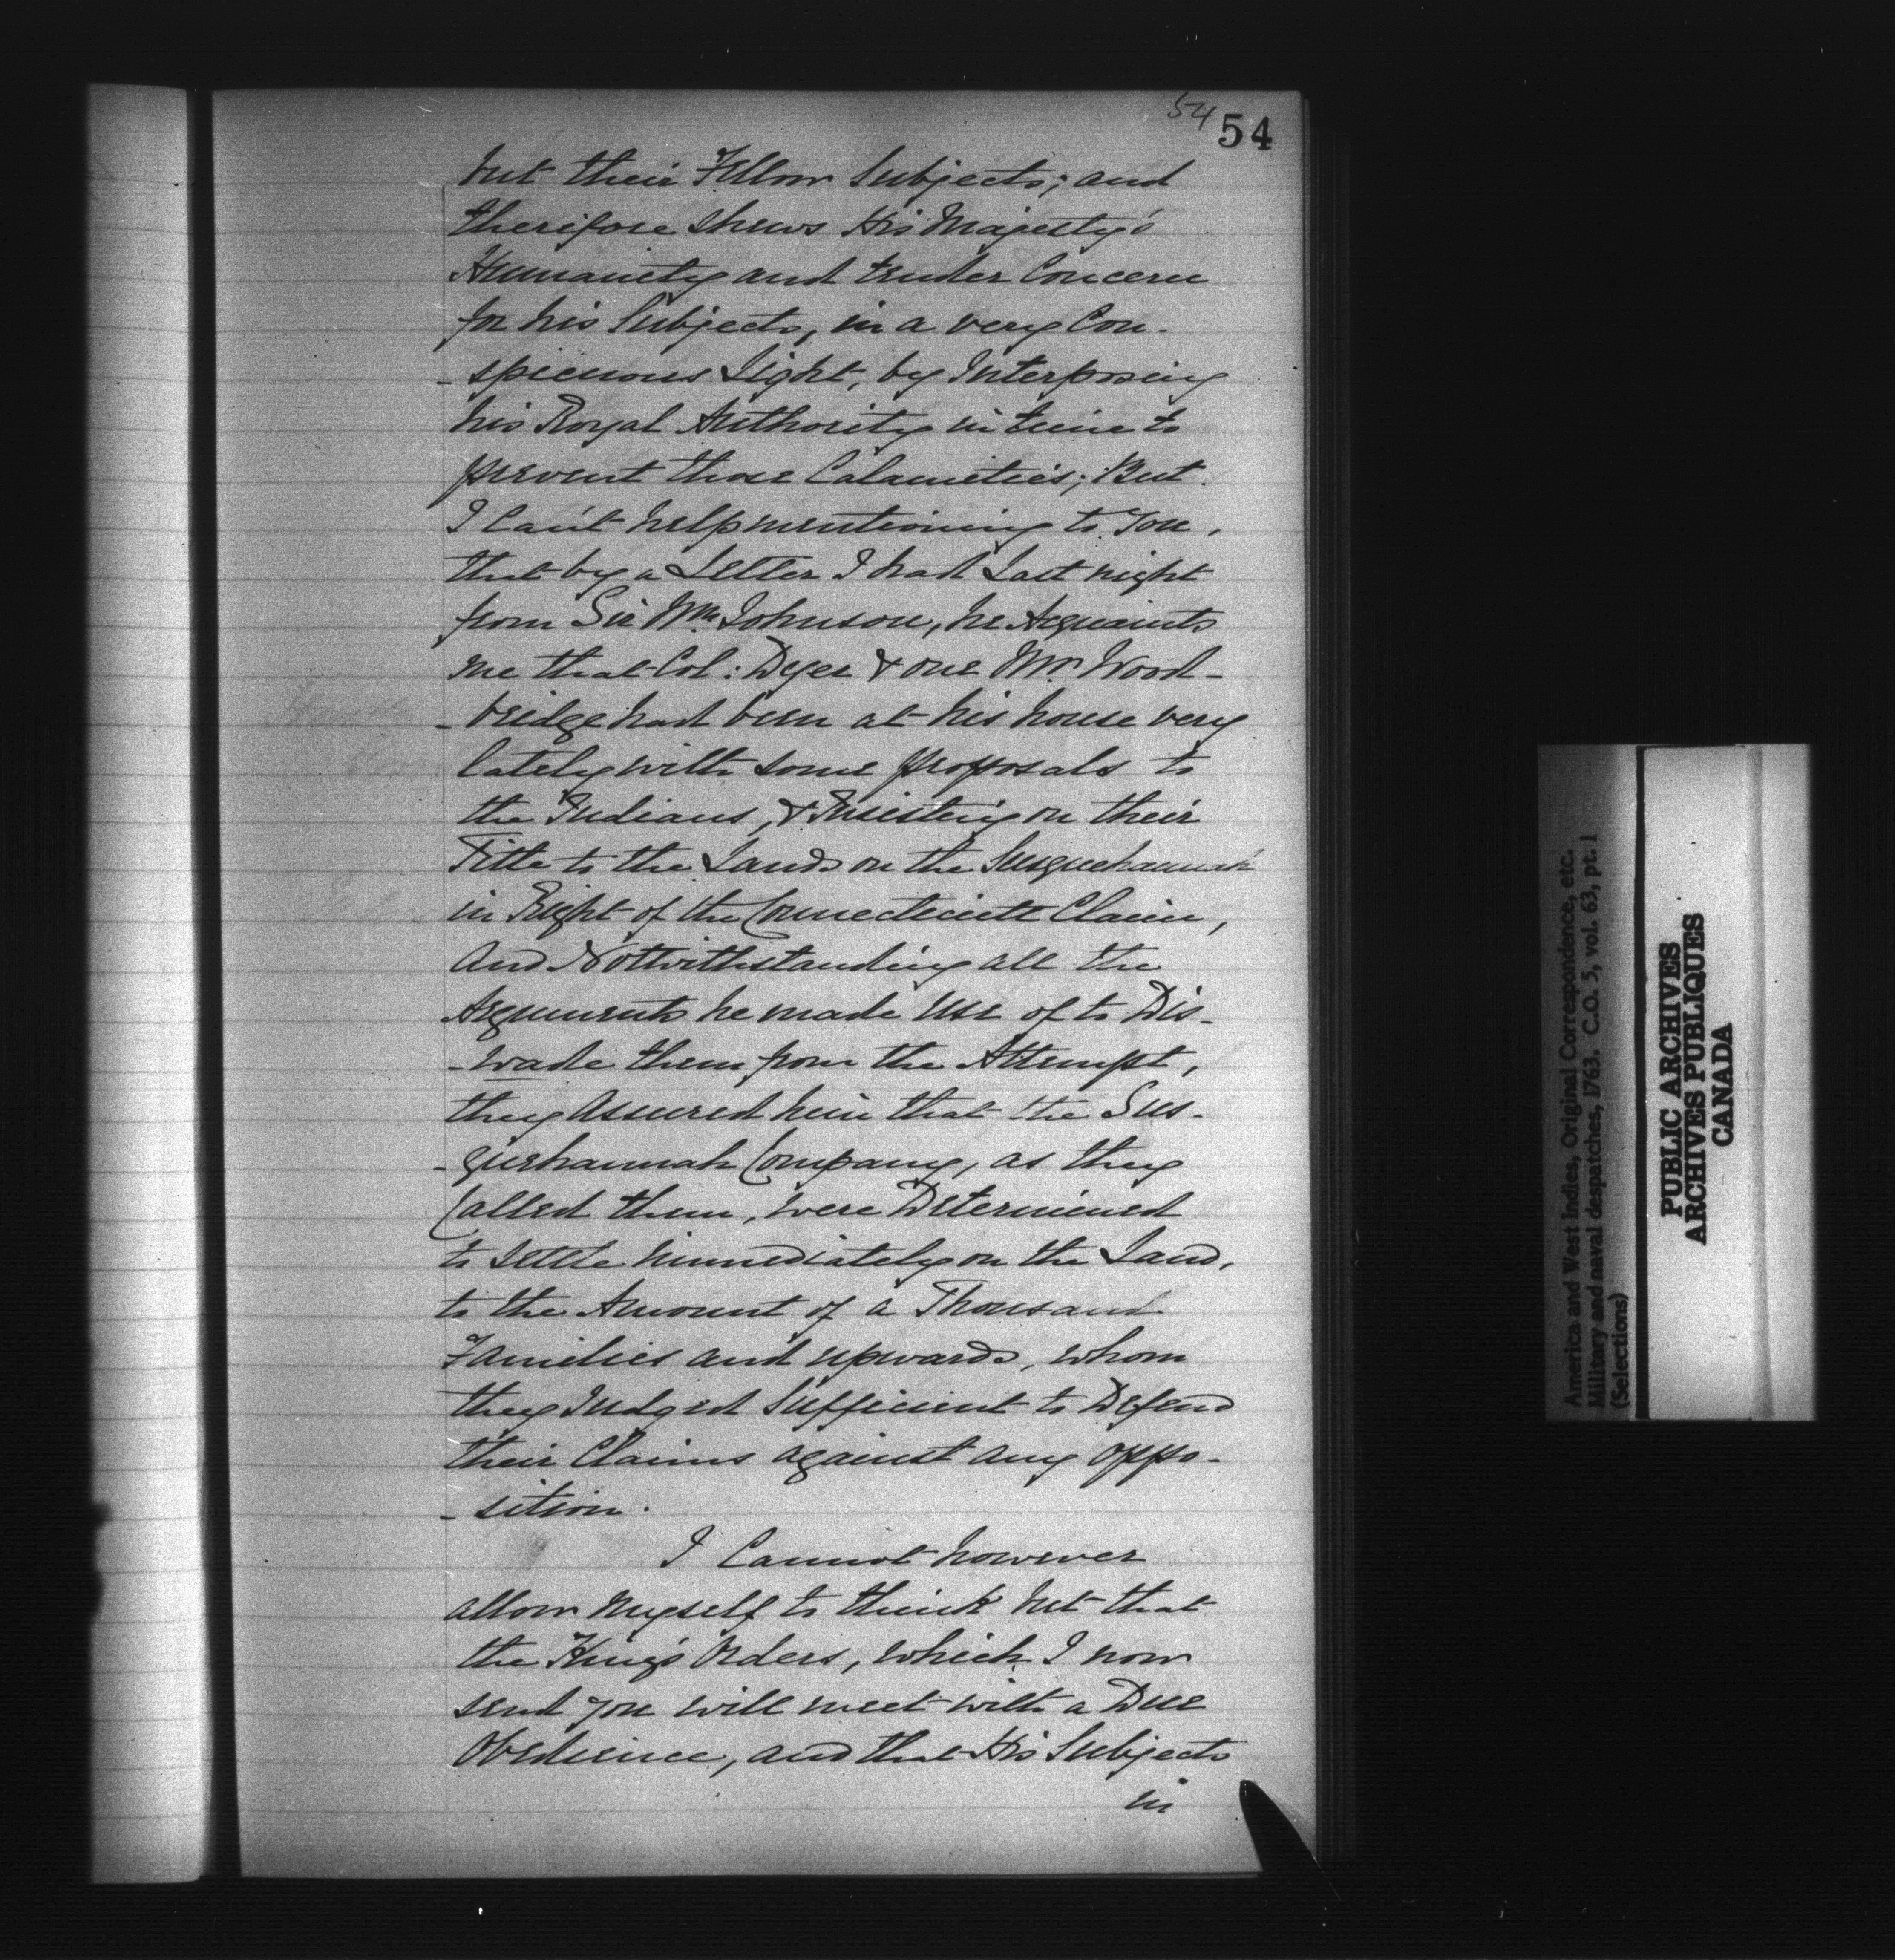 54
54
but their Fellow Subjects; and
therefore shews His Majesty's
Humanity and tender Concern
for his Subjects, in a very Con-
-spicuous Light, by Interposing
his Royal Authority in time to
prevent those Calamities; But
I Can't help mentioning to You,
that by a Letter I had Last night
from Sir Wm. Johnson, he Acquaints
me that Col: Dyer & one Mr. Wood-
-bridge had been at his house very
lately with some proposals to
the Indians, & Insisting on their
Title to the Lands on the Susquehannah
in Right of the Connecticutt Claim,
And Notwithstanding all the
Arguments he made use of to Dis-
-wade them from the Attempt,
they Assured him that the Sus-
-quehannah Company, as they
Called them, were Determined
to settle immediately on the Land,
to the Amount of a Thousand
Families and upwards, whom
they Judged Sufficient to Defend
their Claims against any oppo-
-sition.
I Cannot however
allow myself to think but that
the King's Orders, which I now
send you will meet with a Due
Obedience, and that His Subjects
in
America and West Indies, Original Correspondence, etc.
Military and naval despatches, 1763. C.O. 5, vol. 63, pt. 1
(Selections)
PUBLIC ARCHIVES
ARCHIVES PUBLIQUES
CANADA